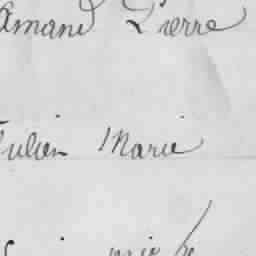 Amand Pierre
Julien Marie